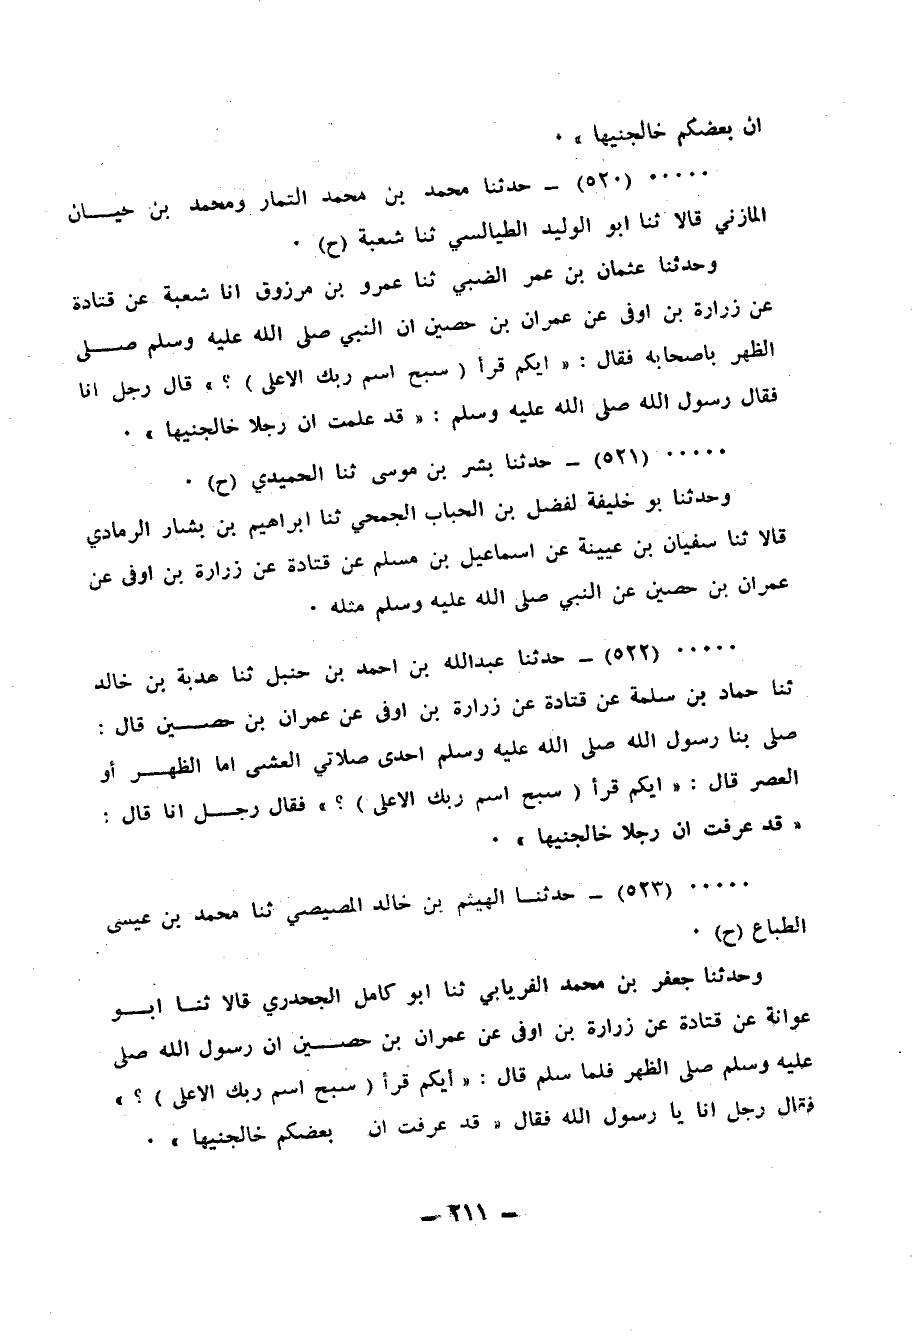 ان بعضكم خالجنيها » ٠
٠٠٠٠٠ (٥٢٠) ــ حدثنا محمد بن محمد التمار ومحمد بن حيـــان
المازني قالا ثنا ابو الوليد الطيالسي ثنا شعبة (ح) ٠
وحدثنا عثمان بن عمر الضبي ثنا عمرو بن مرزوق انا شعبة عن قتادة
عن زرارة بن اوفى عن عمران بن حصين ان النبي صلى الله عليه وسلم صـــلى
الظهر باصحابه فقال : « ايكم قرأ ( سبح اسم ربك الاعلى ) ؟ » قال رجل انا
فقال رسول الله صلى الله عليه وسلم : « قد علمت ان رجلا خالجنيها » ٠
٠٠٠٠٠ (٥٢١) ــ حدثنا بشر بن موسى ثنا الحميدي (ح) ٠
وحدثنا بو خليفة لفضل بن الحباب الجمحي ثنا ابراهيم بن بشار الرمادي
قالا ثنا سفيان بن عيينة عن اسماعيل بن مسلم عن قتادة عن زرارة بن اوفى عن
عمران بن حصين عن النبي صلى الله عليه وسلم مثله ٠
٠٠٠٠٠ (٥٢٢) ــ حدثنا عبدالله بن احمد بن حنبل ثنا هدبة بن خالد
ثنا حماد بن سلمة عن قتادة عن زرارة بن اوفى عن عمران بن حصـــين قال :
صلى بنا رسول الله صلى الله عليه وسلم احدى صلاتي العشى اما الظهـــر أو
العصر قال : « ايكم قرأ ( سبح اسم ربك الاعلى ) ؟ » فقال رجـــل انا قال :
« قد عرفت ان رجلا خالجنيها » ٠
٠٠٠٠٠ (٥٢٣) ــ حدثنـــا الهيثم بن خالد المصيصي ثنا محمد بن عيسى
الطباع (ح) ٠
وحدثنا جعفر بن محمد الفريابي ثنا ابو كامل الجحدري قالا ثنـــا ابـــو
عوانة عن قتادة عن زرارة بن اوفى عن عمران بن حصـــين ان رسول الله صلى
عليه وسلم صلى الظهر فلما سلم قال : « أيكم قرأ ( سبح اسم ربك الاعلى ) ؟ »
فقال رجل انا يا رسول الله فقال « قد عرفت ان بعضكم خالجنيها » ٠
ــ ٢١١ ــ